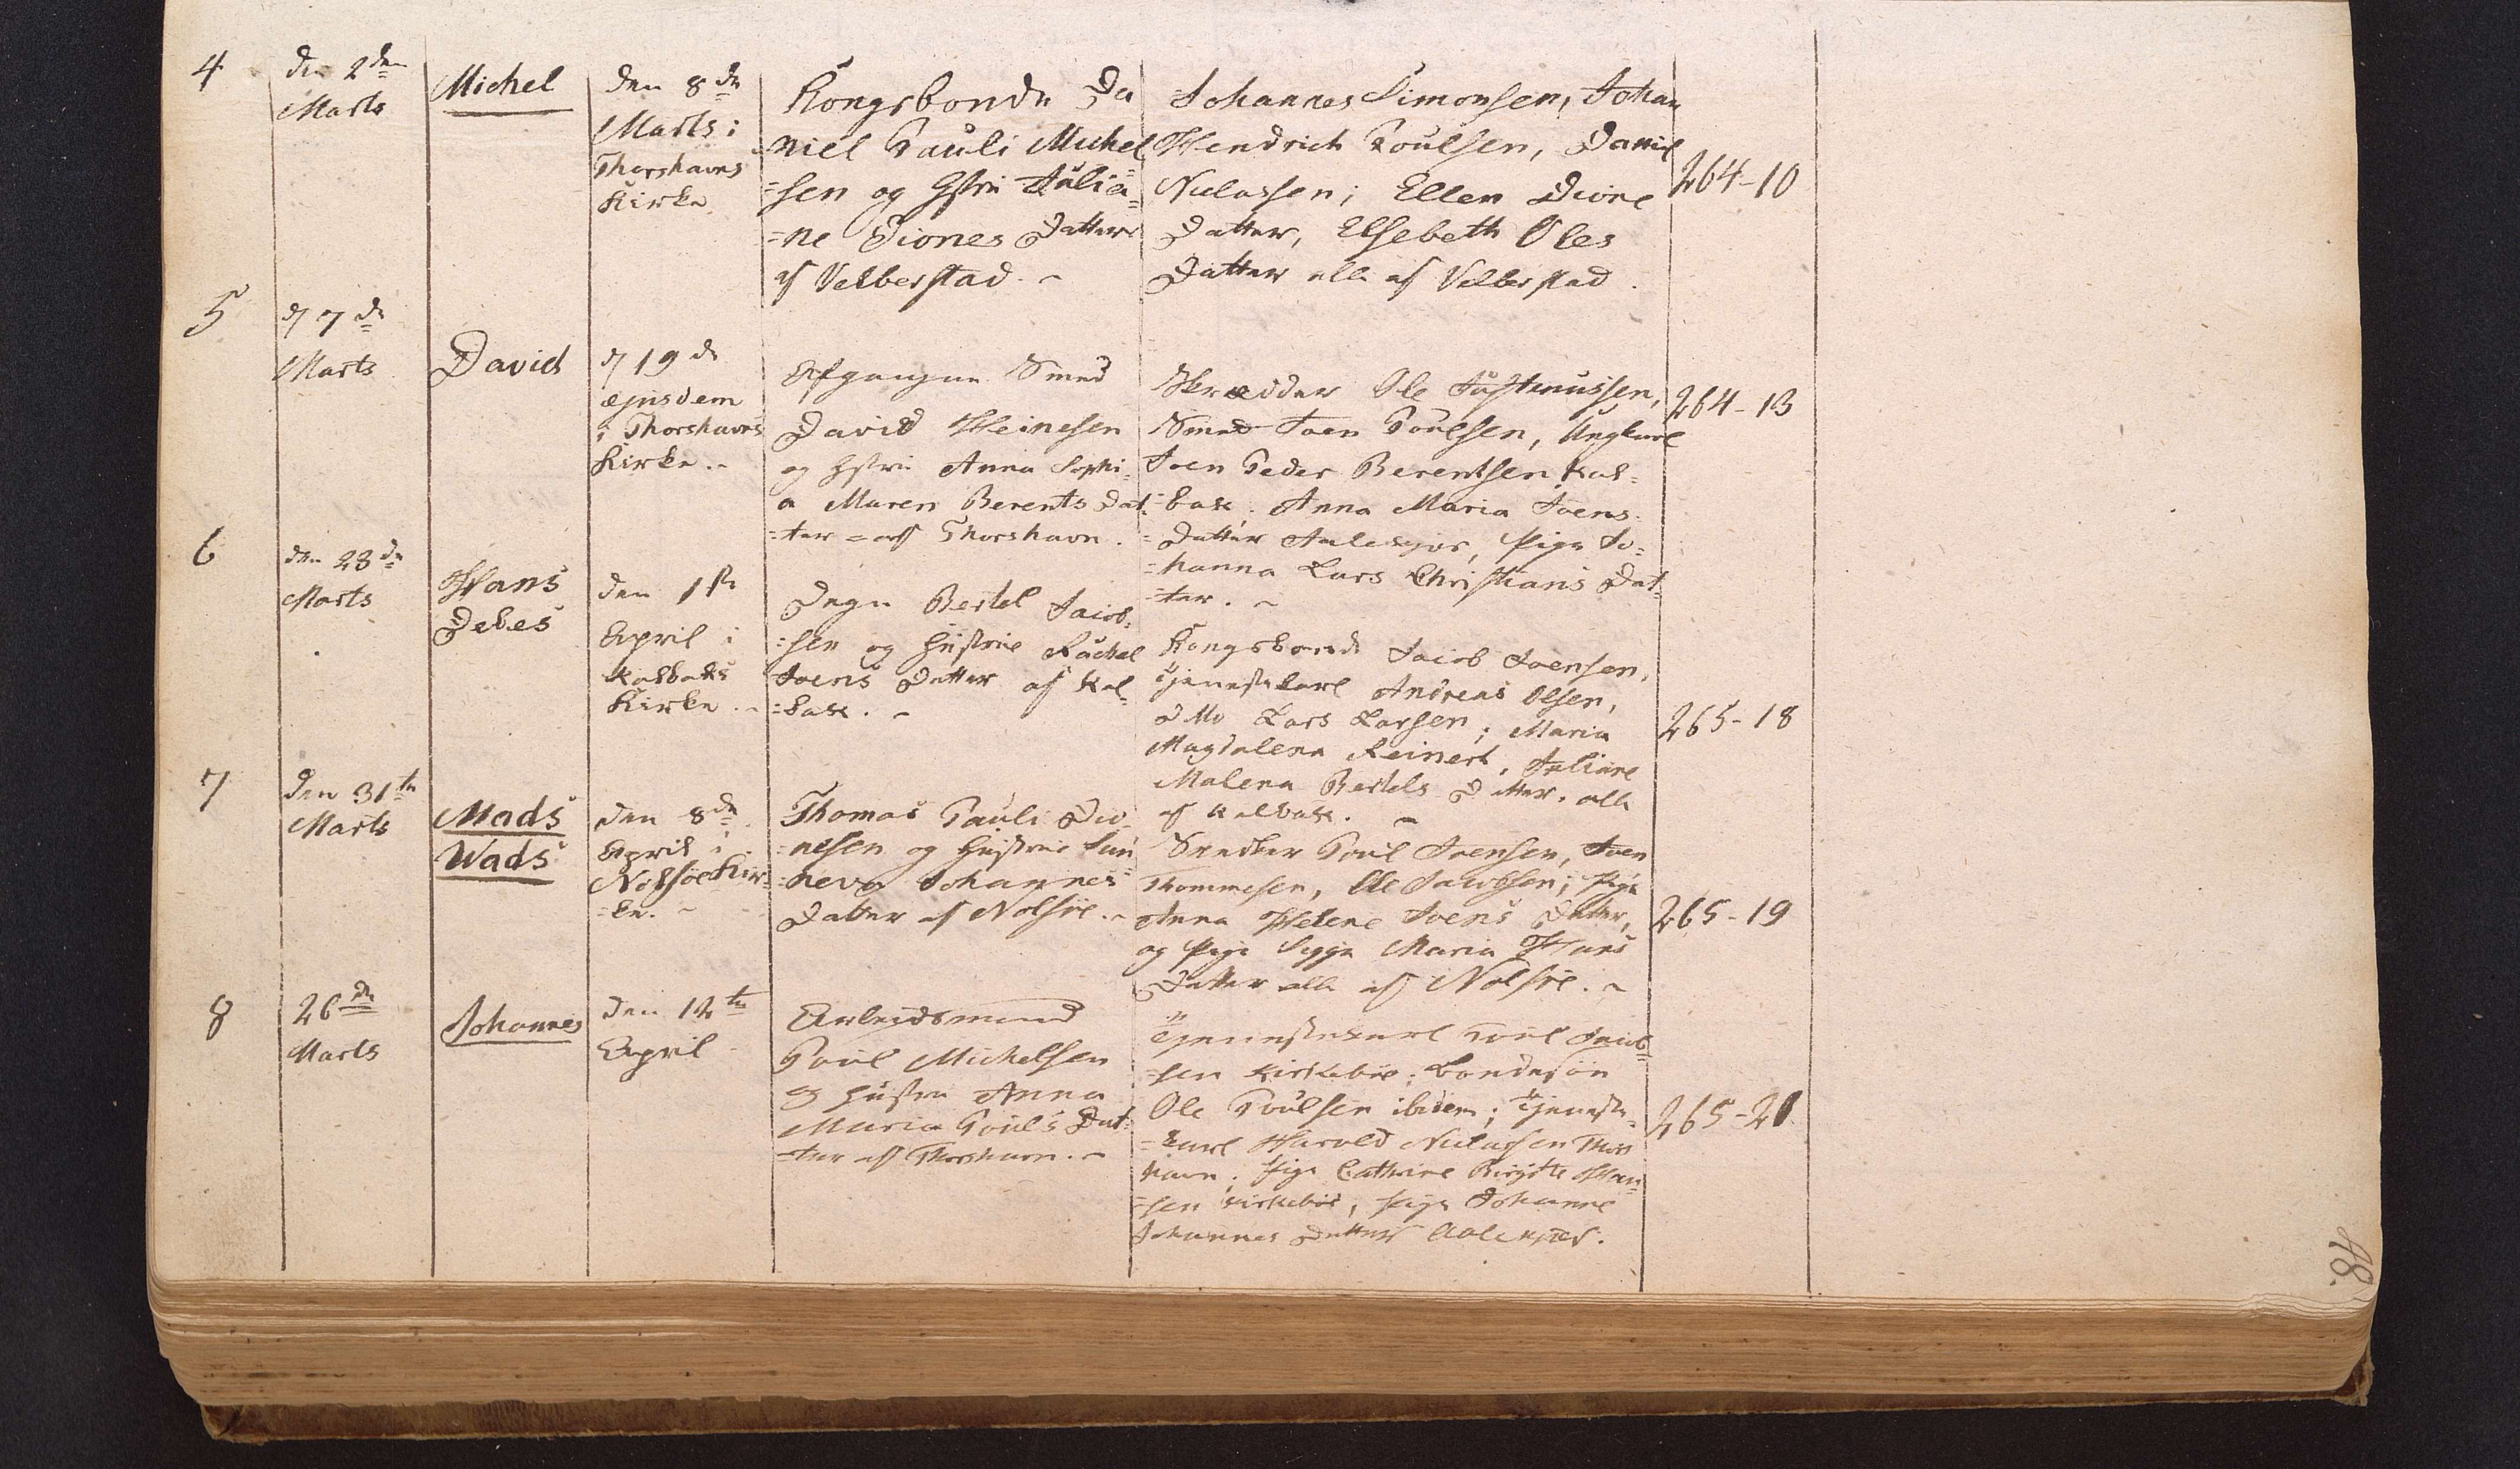 4
den 2den
Marts
Michel
den 8de
Marts i
Thorshavns
Kirke
Kongsbonde Da
=niel Pauli Michel
=sen og Hstru Julia=
=ne Diones Datter
af Velberstad. ~
Johannes Simonsen, Johan
Hendrich Poulsen, Daniel
Niclassen; Ellen Dione
Datter, Elsebeth Oles
Datter alle af Velberstad.
264-10
5
d 7de
Marts
David
d 19de
ejusdem
i Thorshavns
Kirke. ~
Afgangne Smed
David Heinesen
og Hstru Anna Sophi=
a Maren Berents Dat=
=ter = af Thorshavn.
Skrædder Ole Justenussen,
Smed Joen Poulsen, Ungkarl
Joen Peder Berentsen Kal=
=bak; Anna Maria Joens
=Datter, Pige Jo=
=hanna Lars Christians Dat=
=ter. ~
264-13
6
den 23de
Marts
Hans
Debes
den 1ste
April i
Kalbaks
Kirke. ~
Degn Bertel Jacob=
=sen og Hustrue Rachel
Joens Datter af Kal=
=bak. ~
Kongsbonde Jacob Joensen,
Tjenestekarl Andreas Olsen,
dito Lars Larsen; Maria
Magdalena Reinert, Juliane
Malena Bertels Datter, alle
af Kalbak. ~
265-18
7
den 31te
Marts
Mads
Wads
den 8de
April i
Nolsøe Kir=
=ke. ~
Thomas Pauli Dio=
=nesen og Hustrue Sun
=neva Johannes=
Datter af Nolsöe. ~
Snedker Poul Joensen, Joen
Thommesen, Ole Jacobsen; Pige
Anna Helene Joens Datter,
og Pige Sigga Maria Hans
Datter alle af Nolsöe. ~
265-19
8
26de
Marts
Johannes
den 12te
April
Arbejdsmand
Poul Michelsen
og Hustru Anna
Maria Pouls Dat=
=ter af Thorshavn. ~
Tjenestekarl Poul Jacob=
=sen Kirkebøe; Bondesøn
Ole Poulsen ibidem; Tjeneste=
=karl Harald Niclassen Thors
havn; Pige Cathrine Birgitte Han=
=sen Kirkebøe, Pige Johanne
Johannes Datter
265-21
48.